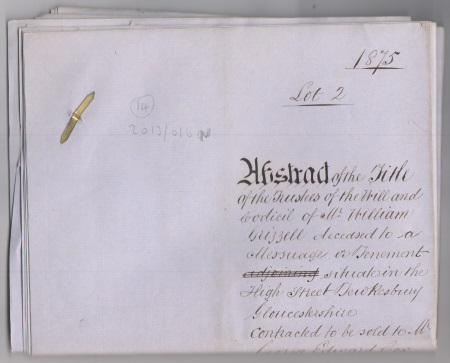 1875
Lot 2
14
2013/016
Abstract of the Title
of the Trustees of the Will and
Codicil of Mr. William
deceased to a
Messuage or Tenement
adjoining situate in the
High Street Tewkesbury
Gloucestershire
contracted to be sold to Mr
Edward